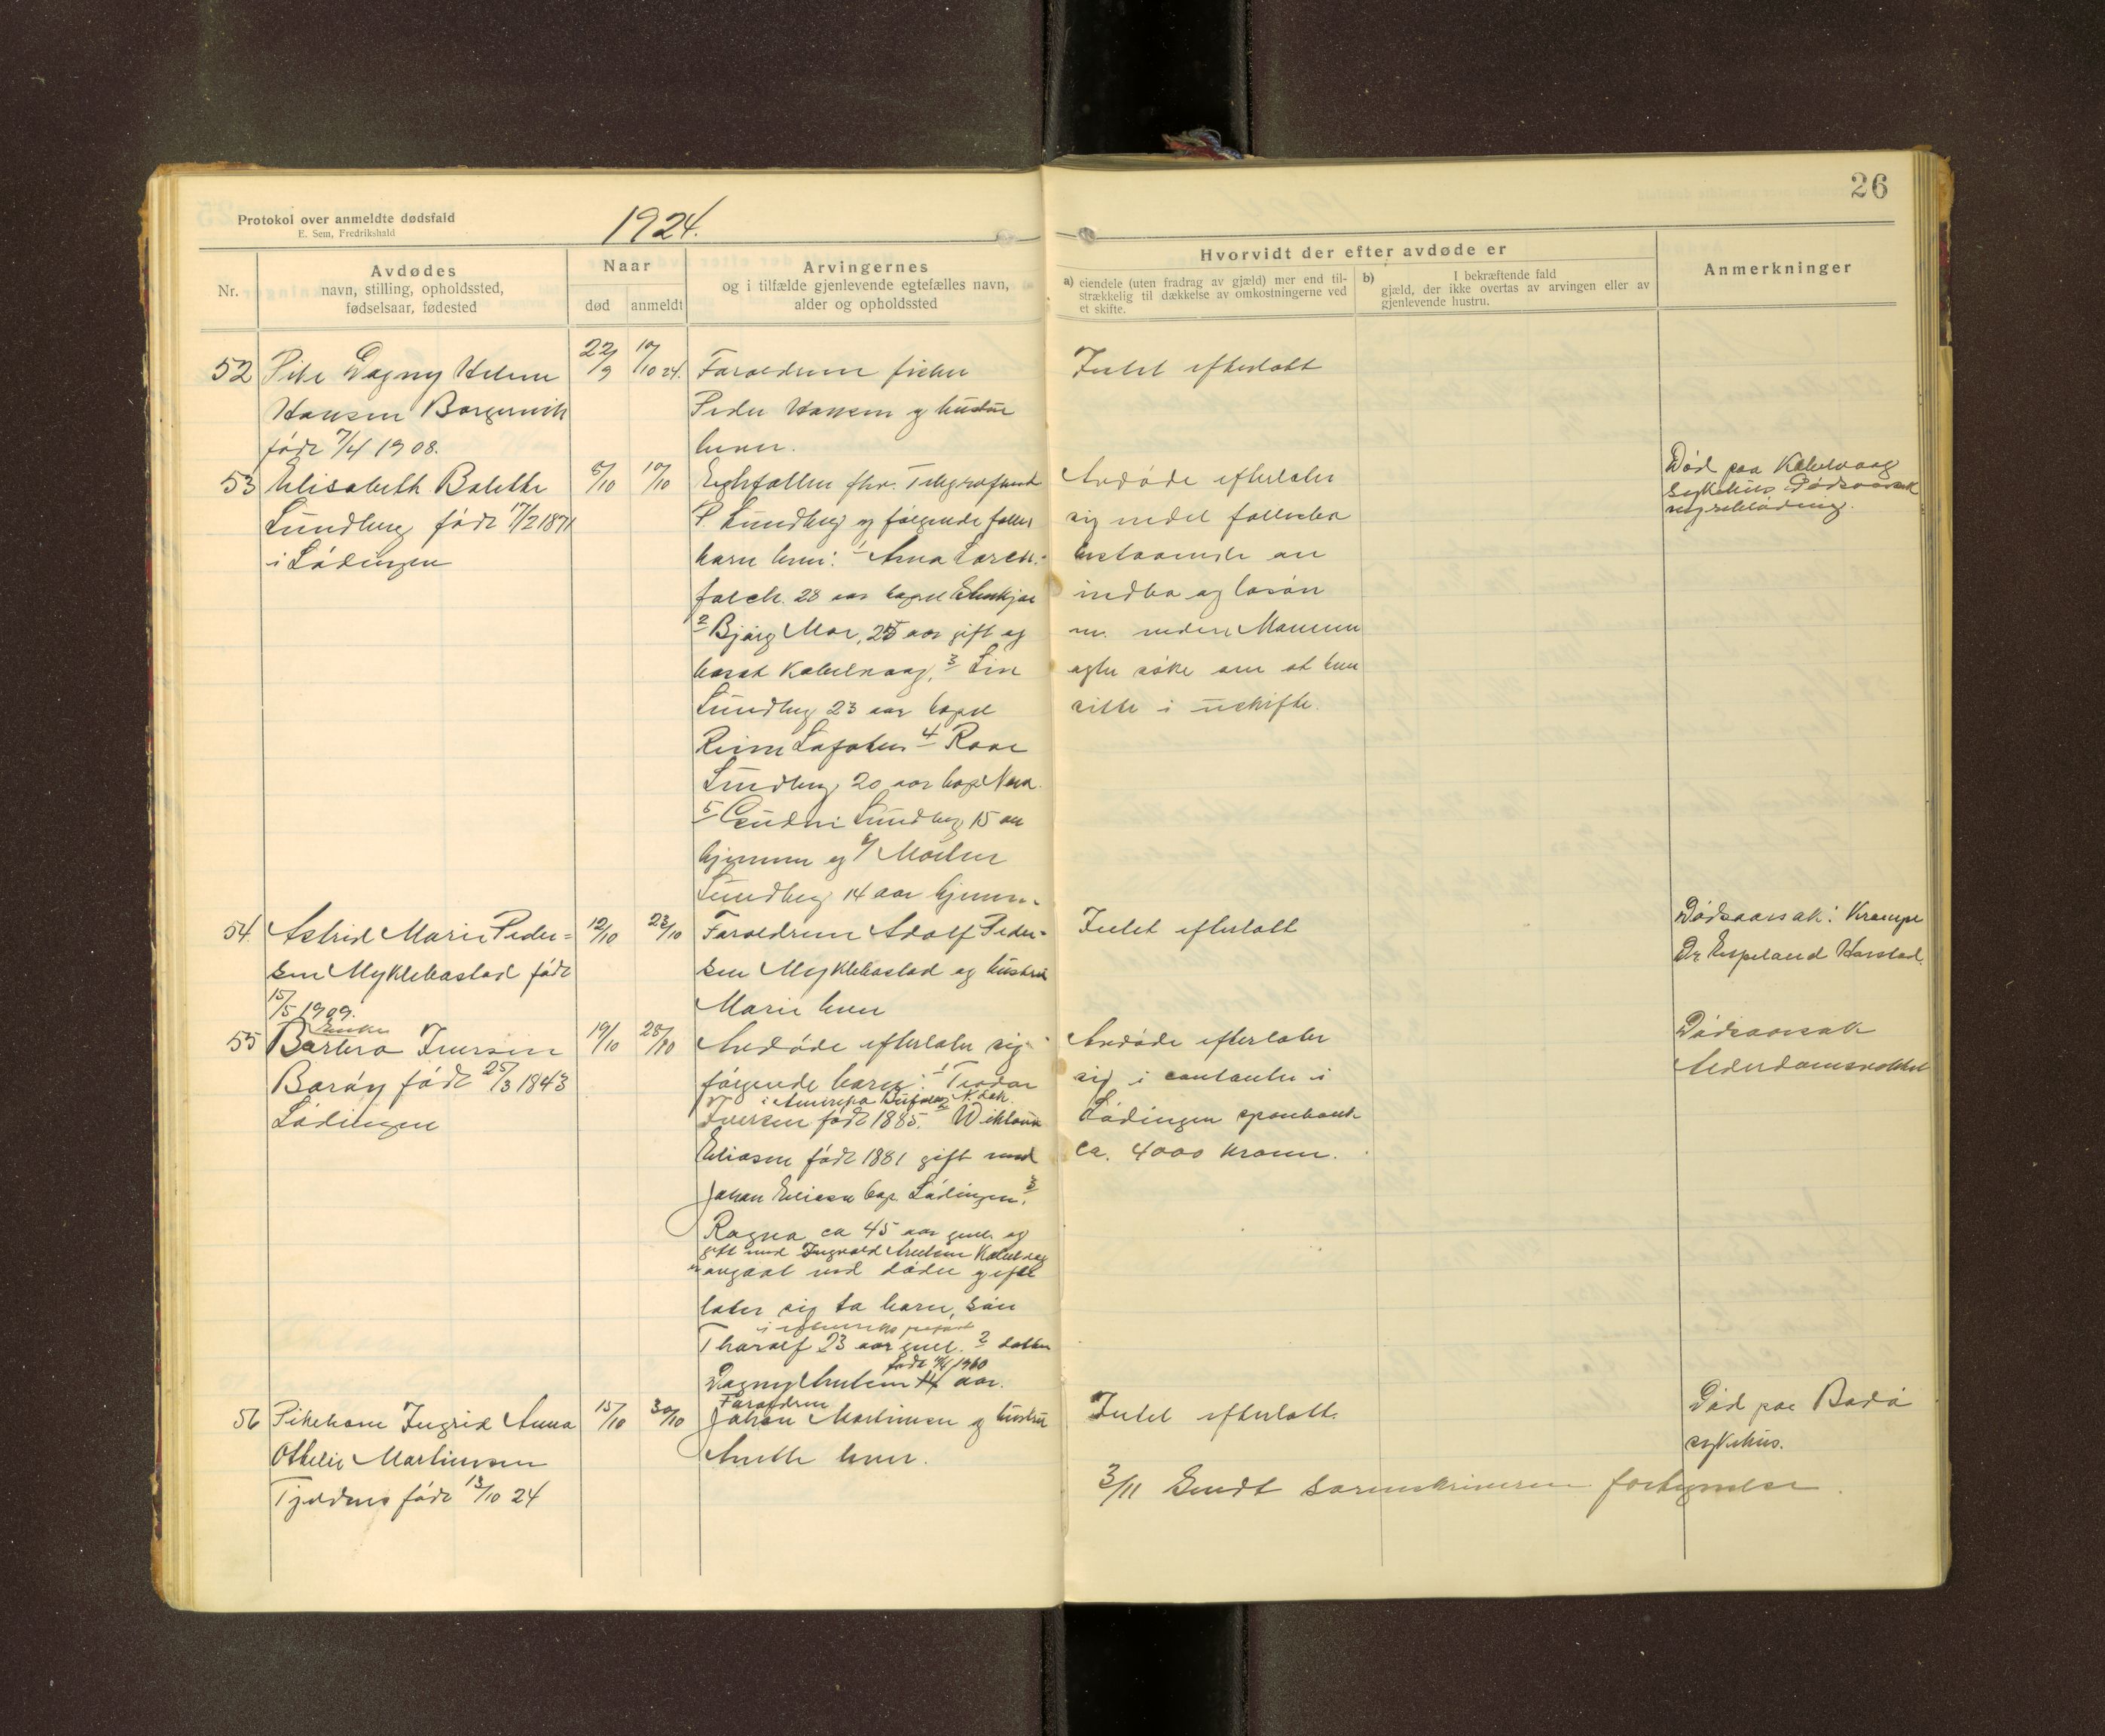 26
Protokol over anmeldte dødsfald
E. Sem, Fredrikshald
1924.
Nr.
Avdødes
navn, stilling, opholdssted,
fødselsaar, fødested
Naar
død
anmeldt
Arvingernes
og i tilfælde gjenlevende egtefælles navn,
alder og opholdssted
Hvorvidt der efter avdøde er
a) eiendele (uten fradrag av gjæld) mer end til-
strækkelig til dækkelse av omkostningerne ved
et skifte.
b) I bekræftende fald
gjæld, der ikke overtas av arvingen eller av
gjenlevende hustru.
Anmerkninger
52 Pike Dagny Helene
Hansen Borgervik
født 7/4 1908.
22/9
10/10 24.
Foraldrene fisker
Peder Hansen og hustru
herver.
Intet efterlatt
53 Elisabeth Bolette
Lundberg født 17/2 1871
i Lødingen
5/10
10/10
Egtefællen fhv.
P. Lundberg og følgende felles
barn 1 Anna
falch. 28 aar
2 Bjørg Moe, 25 aar gift og
bosat Kabelvaag, 3
Lundberg 23 aar
4 Roar
Lundberg 20 aar
5 Gudni Lundberg 15 aar
hjemme og 6/
Lundberg 14 aar hjemme
Avdøde efterlater
sig med felleseba
bestaaende av
indbo og løsøre
søke om at
sitte i uskifte.
Død paa Kabelvaag
sykehus Dødsaarsak
54. Astrid Marie Peder=
sen Myklebostad født
15/5 1909.
12/10
23/10
Foraldrene Adolf Peder=
sen Myklebostad og hustru
Marie
Intet efterlatt
Dødsaarsak: Krampe
Dr. Espeland Harstad.
55 Enke
Iversen
Barøy født 25/3 1843
Lødingen
19/10
28/10
Avdøde efterlater sig
følgende barn: 1 Teodor
i Amerika
Iversen født 1885. 2
Eliasen født 1881 gift med
Johan Eliasen Lødingen. 3
Ragna ca 45 aar og
gift med Ingvald
ved døden
later sig to barn, søn
Tharalf 23 aar 2 datter
født 1910
Dagny 14 aar.
Avdøde efterlater
sig i contanter i
Lødingen sparebank
ca. 4000 kroner.
Dødsaarsak
Alderdomssvakhet
56 Pikebarn Ingrid Anna
Othelie Martinsen
Tjeldnes født 13/10 24
15/10
30/10
Foraldrene
Johan Martinsen og hustru
Anette
Intet efterlatt.
Død paa Bodø
sykehus.
3/11 Sendt sorenskriveren fortegnelse.